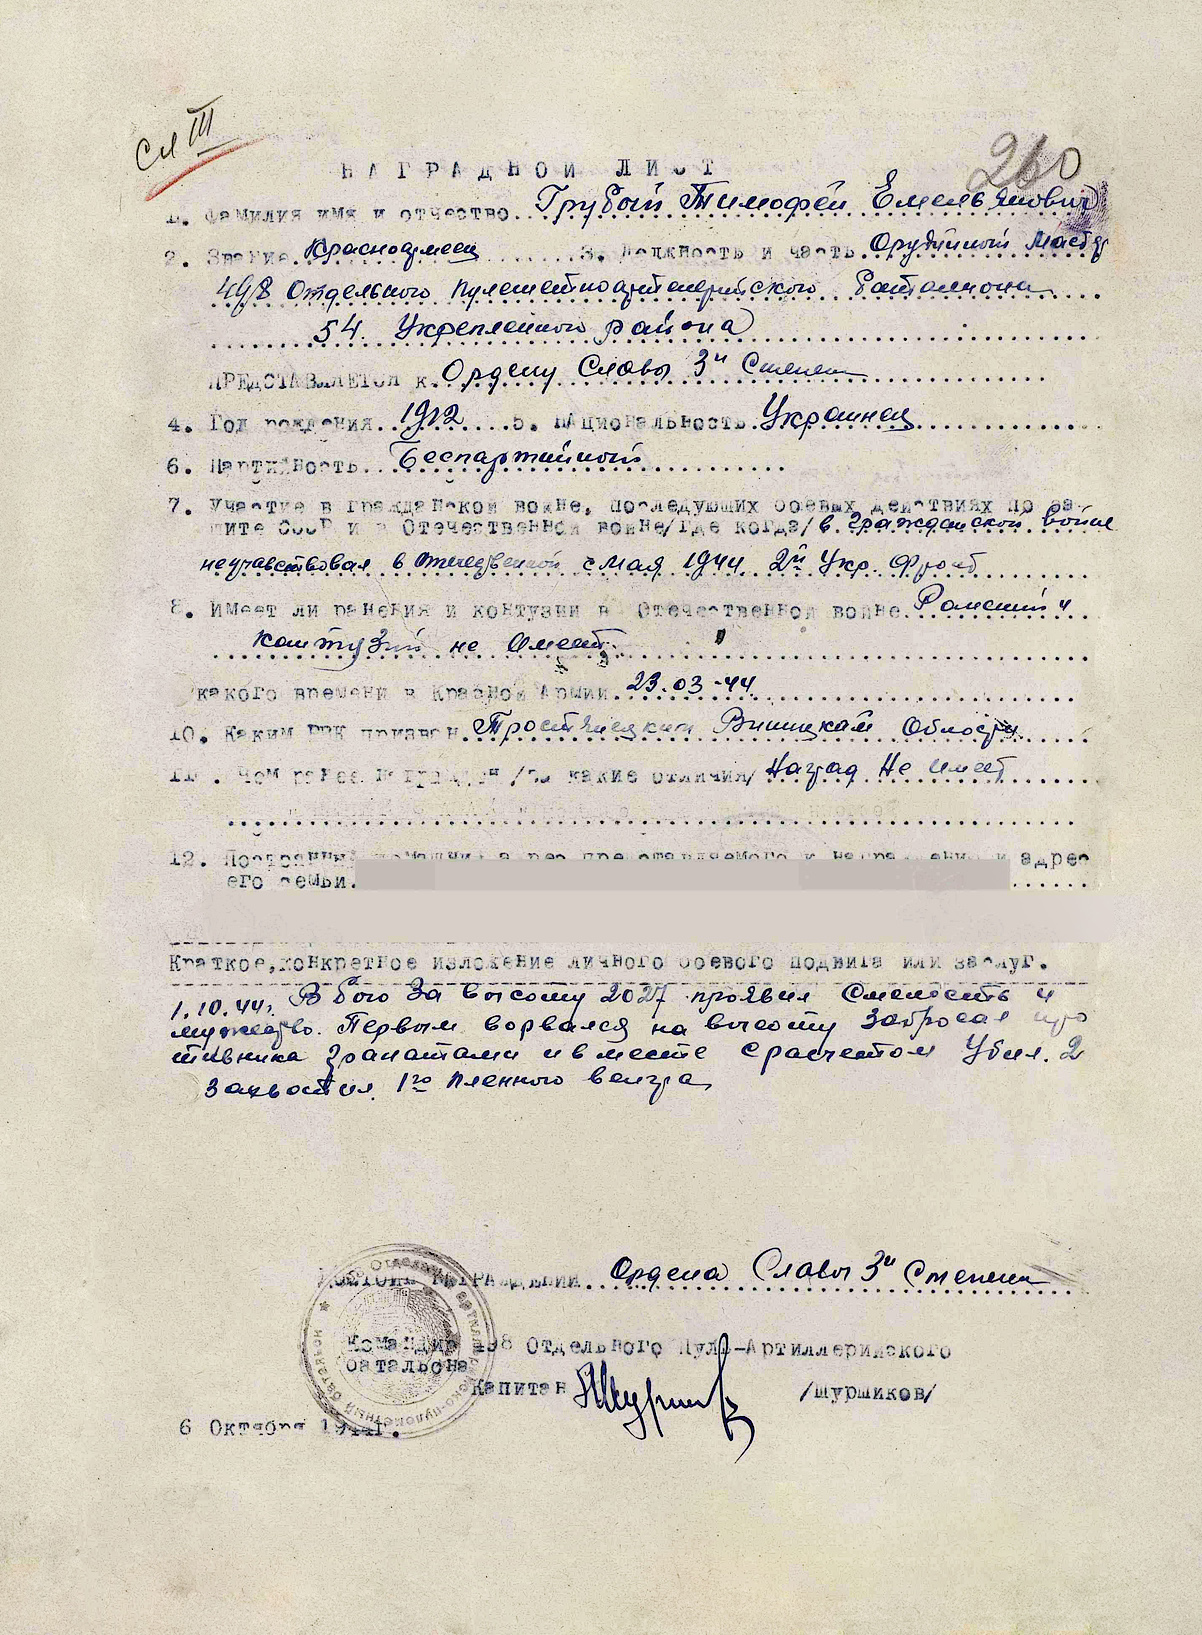 сл III
260
НАГРАДНОЙ ЛИСТ
1. Фамилия имя и отчество..Грубый Тимофей Емельянович
2. Звание..Красноармеец.......3. Должность и часть.Орудийный Мастер
498 Отдельного Пулеметноартилерийского Баталиона
54. Укрепленного района
ПРЕДСТАВЛЯЕТСЯ к.Ордену Славы 3й Степени
4. Год рождения..1912....5. Национальность.Украинец
6. Партийность...Беспартийный
7. Участие в гражданской войне, последующих боевых действиях по за-
щите СССР и в Отечественной войне/где когда/в Гражданской войне
неучавствовал в отечественной с мая 1944 2й Укр. Фронт
8. Имеет ли ранения и контузии в Отечественной войне.Ранений и
контузий не Имеет.
какого времени в Красной Армии.23.03-44
10. Каким РВК призван.Тростянецким Виницкой Области
11. Чем ранее награжден /за какие отличия/ Наград Не имеет
12. Постоянный домашний адрес представляемого к награждению и адрес
его семьи.
Краткое,конкретное изложение личного боевого подвига или заслуг.
1.10.44г. В бою За высоту 2027 проявил Смелость и
мужество. Первым ворвался на высоту Забросал про
тивника Гранатами и вместе с расчетом Убил. 2
Захватил. 1го пленного венгра
Достоин награждения..Ордена Славы 3й Степени
Командир 498 Отдельного Пул-Артиллерийского
батальона
Капитан /Шуршиков/
6 Октября 1944г.